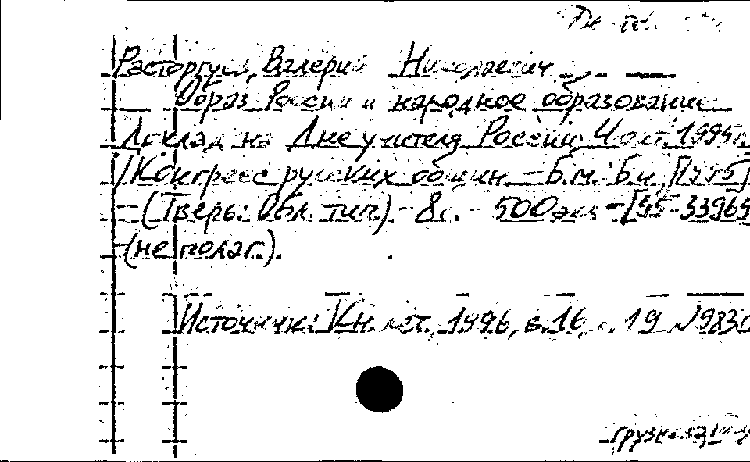 Расторгуев, Валерий Николаевич
Образ России и народное образование
Доклад на Дне учителя России, 4 окт. 1995г.
/ Конгресс русских общин. - Б.м.: Б.и., [1995]
- (Тверь: Обл. тип.) - 8с. - 500экз - [95-33965
(не полаг.).
Источник: Кн. лет., 1996, в.16, с. 19 №9830